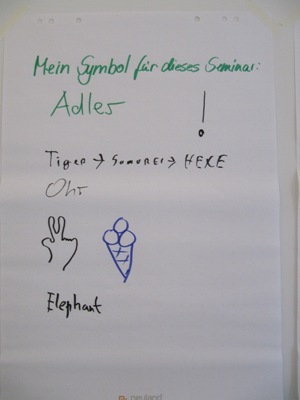 Mein Symbol für dieses Seminar:
Adler !
Tiger → Samurei → HEXE
Ohr
Elephant
neuland